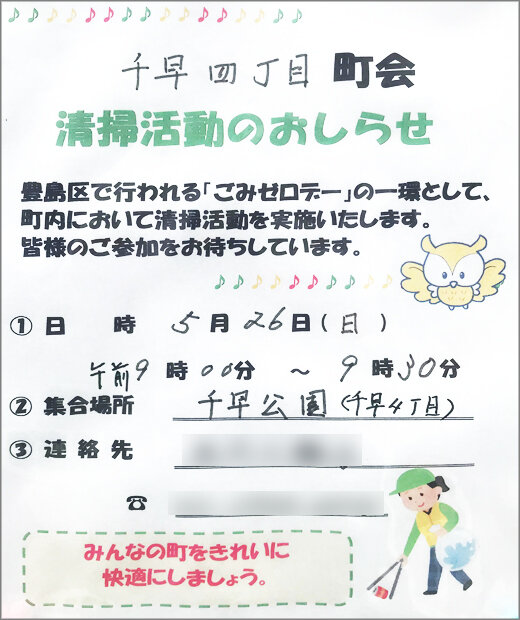 千早四丁目 町会
清掃活動のおしらせ
豊島区で行われる「ごみゼロデー」の一環として、
町内において清掃活動を実施いたします。
皆様のご参加をお待ちしています。
① 日 時 5月26日(日)
午前9時00分 ～ 9時30分
② 集合場所 千早公園(千早4丁目)
③ 連絡先
☎
みんなの町をきれいに
快適にしましょう。